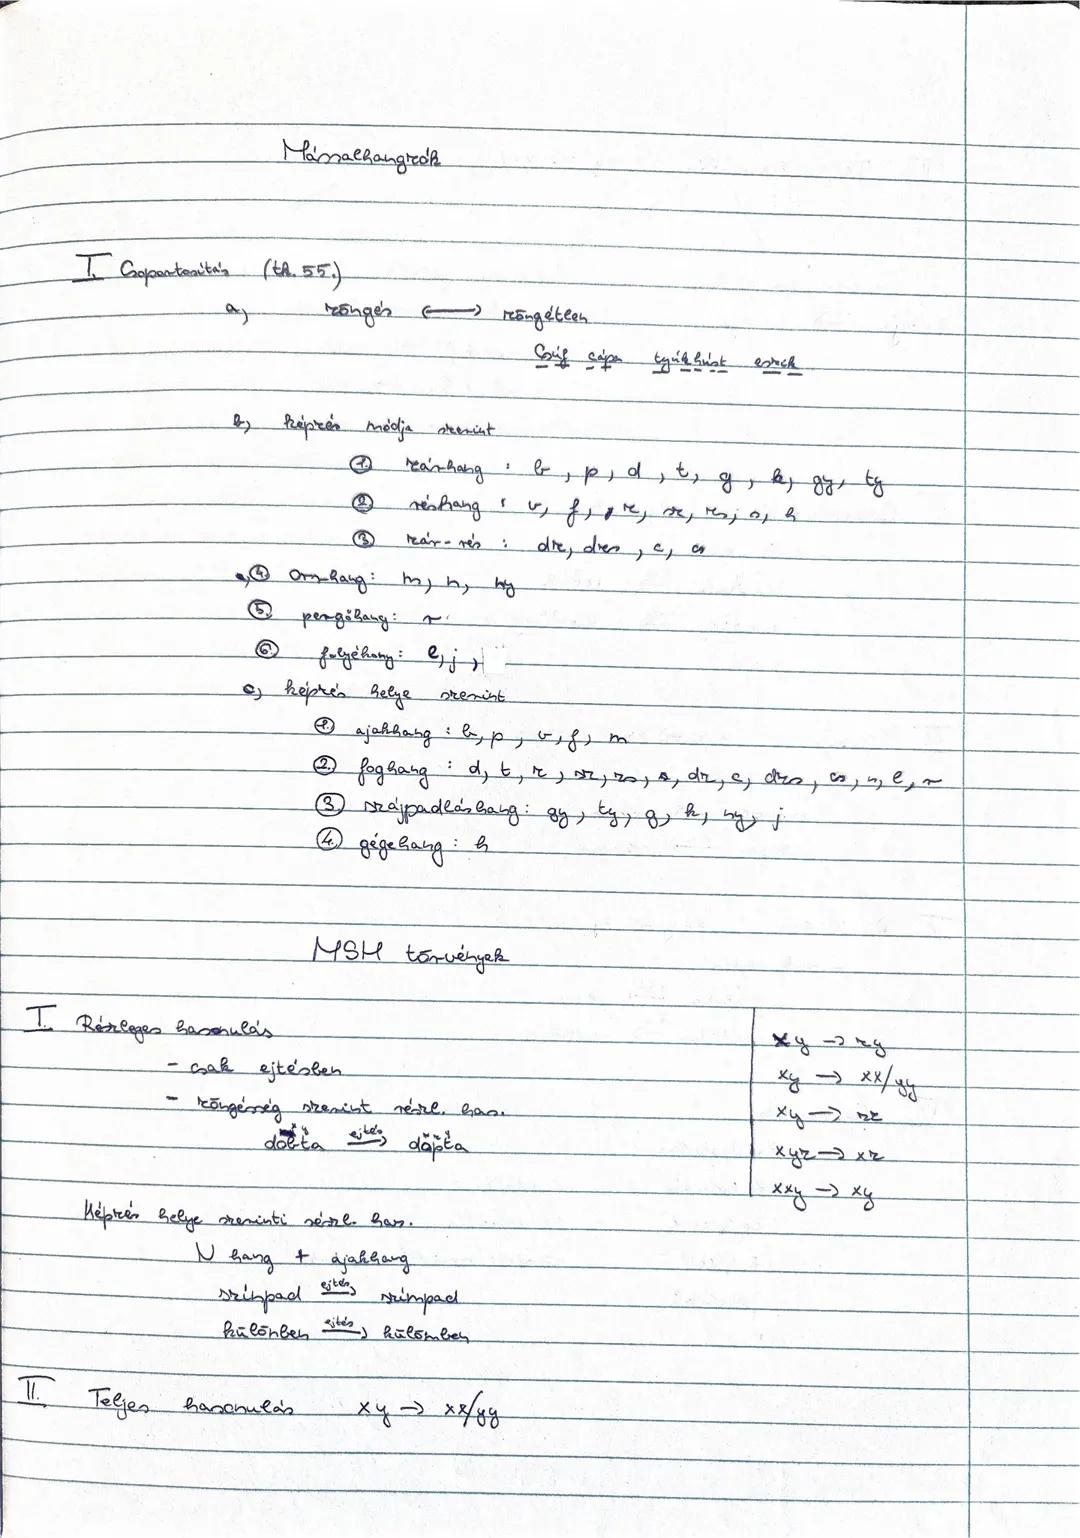 Mássalhangzók
I. Csoportosítás (tk. 55.)
a, zöngés ⟷ zöngétlen
Csúf cápa tyúkhúst eszik
b, képzés módja szerint
1. zárhang : b, p, d, t, g, k, gy, ty
2. réshang : v, f, z, sz, zs, s, h
3. zár-rés : dz, dzs, c, cs
4. orrhang: m, n, ny
5. pergőhang: r
6. folyékony: l, j,
c, képzés helye szerint
1. ajakhang : b, p, v, f, m
2. foghang : d, t, z, sz, zs, s, dz, c, dzs, cs, n, l, r
3. szájpadláshang: gy, ty, g, k, ny, j
4. gégehang : h
MSH törvények
I. Részleges hasonulás
- csak ejtésben
- zöngésség szerint részl. has.
dobta ejtés→ dopta
Képzés helye szerinti részl. has.
N hang + ajakhang
színpad ejtés→ szímpad
különben ejtés→ külömben
xy → zy
xy → xx/yy
xy → zz
xyz → xz
xxy → xy
II. Teljes hasonulás xy → xx/yy